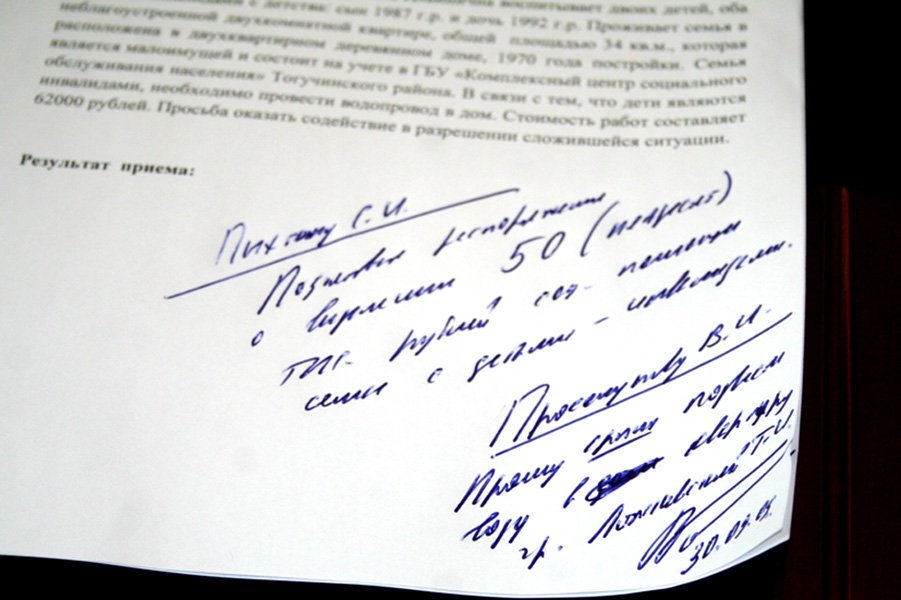 с детства: сын 1987 г.р. и дочь 1992 г.р. Проживает семья в
воспитывает двоих детей, оба
неблагоустроенной двухкомнатной квартире, общей площадью 34 кв.м., которая
расположена в двухквартирном деревянном доме, 1970 года постройки. Семья
является малоимущей и состоит на учете в ГБУ «Комплексный центр социального
обслуживания населения» Тогучинского района. В связи с тем, что дети являются
инвалидами, необходимо провести водопровод в дом. Стоимость работ составляет
62000 рублей. Просьба оказать содействие в разрешении сложившейся ситуации.
Результат приема:
Пихтину С.И.
Подготовьте распоряжение
о выделении 50 (пятьдесят)
тыс. рублей соц. помощи
семье с детьми - инвалидами.
В.И.
Прошу срочно подвести
воду в квартиру
гр. Г.И.
30.09.